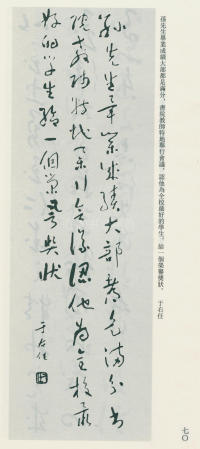 孫先生畢業成績大部都是滿分，書院教師特地舉行會議，認他為全校最好的學生，給一個榮譽獎狀。 于右任
孫先生畢業成績大部都是滿分書
院教師特地舉行會議認他為全校最
好的學生給一個榮譽獎狀
于右任
七〇